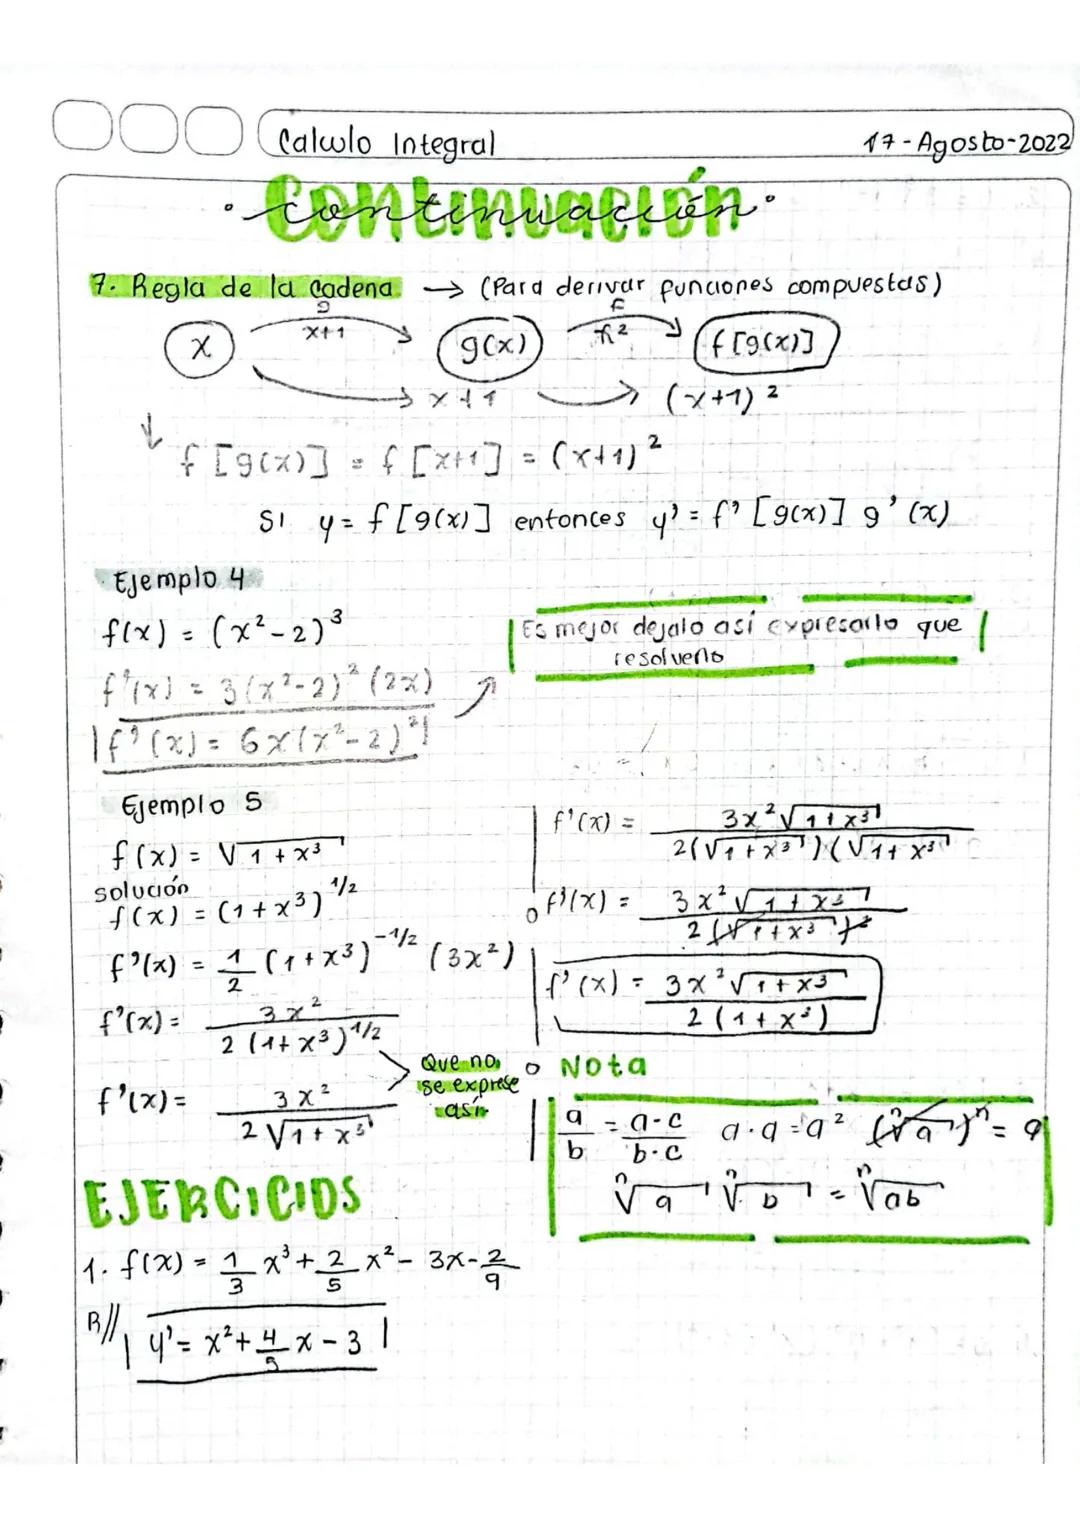 Calculo Integral 17-Agosto-2022
• Continuación •
7. Regla de la cadena → (Para derivar funciones compuestas)
g f
x x+1 g(x) x² f[g(x)]
x+1 (x+1)²
f[g(x)] = f[x+1] = (x+1)²
SI y = f[g(x)] entonces y' = f'[g(x)] g'(x)
Ejemplo 4
f(x) = (x²-2)³
f'(x) = 3(x²-2)² (2x)
f'(x) = 6x(x²-2)²
Es mejor dejalo así expresarlo que
resolverlo
Ejemplo 5
f(x) = √1+x³
solución
f(x) = (1+x³)^1/2
f'(x) = 1/2 (1+x³)^-1/2 (3x²)
f'(x) = 3x² / 2(1+x³)^1/2
f'(x) = 3x² / 2√1+x³
Que no
se exprese
así
f'(x) = 3x²√1+x³ / 2(√1+x³)(√1+x³)
f'(x) = 3x²√1+x³ / 2(√1+x³)²
f'(x) = 3x²√1+x³ / 2(1+x³)
Nota
a/b = a·c/b·c a·a=a² (ⁿ√a)ⁿ = a
ⁿ√a ⁿ√b = ⁿ√ab
EJERCICIOS
1. f(x) = 1/3 x³ + 2/5 x² - 3x - 2/9
R// y' = x² + 4/5 x - 3